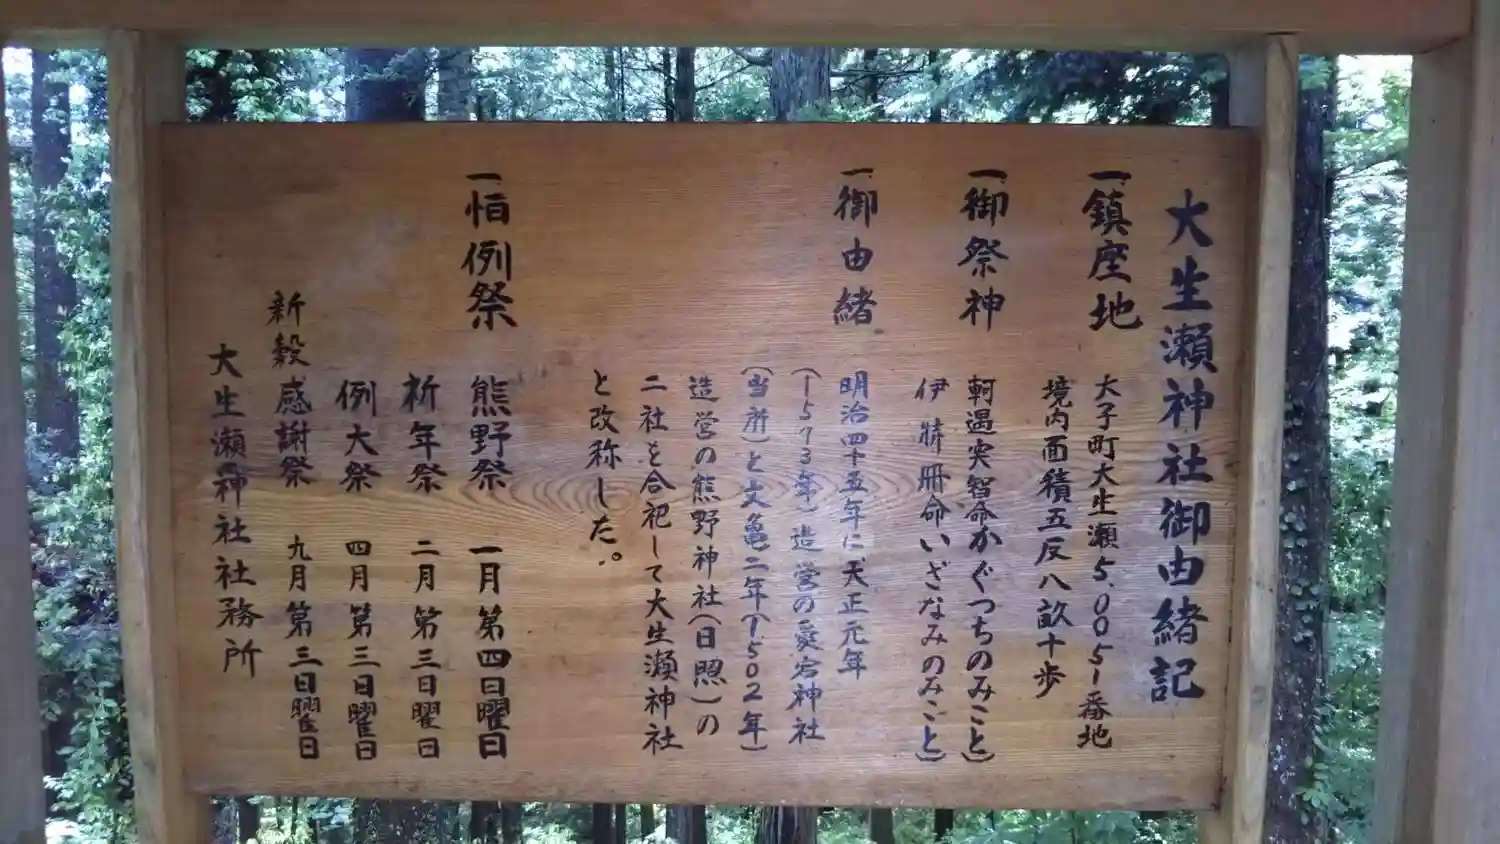 大生瀬神社御由緒記
一鎮座地
大子町大生瀬5.005ー番地
境内面積五反八畝十歩
一御祭神
軻遇突智命かぐつちのみこと)
伊弉冊命いざなみのみこと)
一御由緒
明治四十五年に天正元年
(1573年)造営の愛宕神社
(当所)と文亀二年(1502年)
造営の熊野神社(日照)の
二社を合祀して大生瀬神社
と改称した。
一恒例祭
熊野祭 一月第四日曜日
祈年祭 二月第三日曜日
例大祭 四月第三日曜日
新穀感謝祭 九月第三日曜日
大生瀬神社社務所